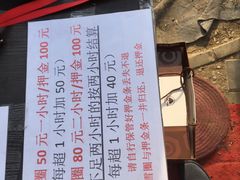 圈 50 元一小时/押金 100 元
每超 1 小时加 50 元）
圈 80 元一小时/押金 100 元
不足两小时的按两小时结算
每超 1 小时加 40 元）
请自行保管好押金条丢失不退
圈与押金条一并归还，退还押金